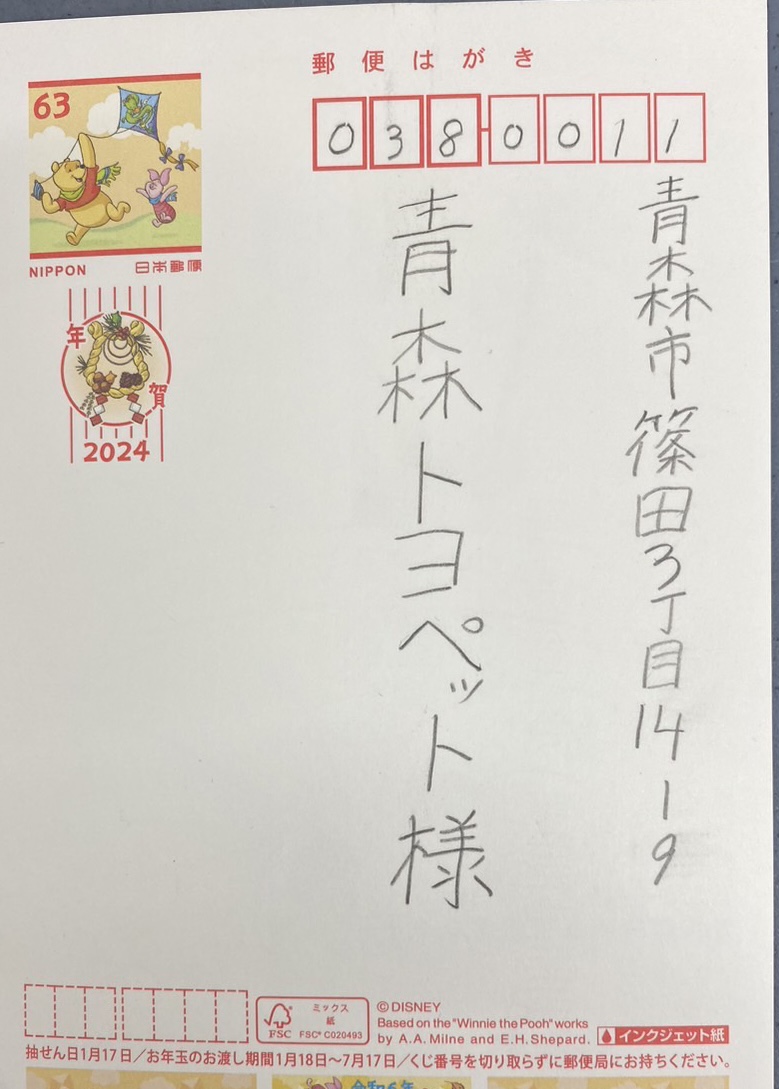 郵便はがき
038-0011
青森市篠田3丁目14-9
青森トヨペット様
63
NIPPON 日本郵便
年賀
2024
ミックス
紙
FSC
FSC® C020493
©DISNEY
Based on the "Winnie the Pooh" works
by A.A. Milne and E.H. Shepard.
インクジェット紙
抽せん日1月17日／お年玉のお渡し期間1月18日〜7月17日／くじ番号を切り取らずに郵便局にお持ちください。
令和6年